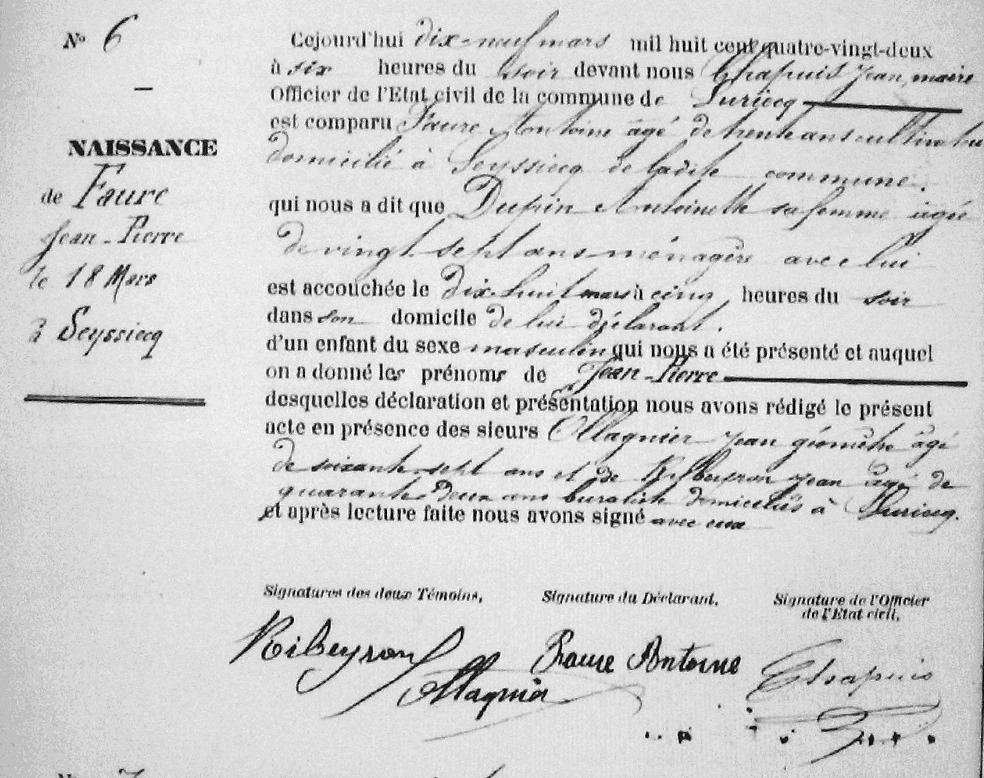 N° 6
NAISSANCE
de Faure
Jean-Pierre
le 18 Mars
à Seyssiecq
Cejourd'hui dix-neuf mars mil huit cent quatre-vingt-deux
à six heures du soir devant nous Chapuis Jean, maire
Officier de l'Etat civil de la commune de Luriecq
est comparu Faure Antoine âgé de trente ans cultivateur
domicilié à Seyssiecq de ladite commune.
qui nous a dit que Dupin Antoinette sa femme âgée
de vingt sept ans ménagère avec lui
est accouchée le dix-huit mars à cinq heures du soir
dans son domicile de lui déclarant.
d'un enfant du sexe masculin qui nous a été présenté et auquel
on a donné les prénoms de Jean-Pierre
desquelles déclaration et présentation nous avons rédigé le présent
acte en présence des sieurs Ollagnier Jean géomètre âgé
de soixante-sept ans et de Ribeyron Jean âgé de
quarante-deux ans buraliste domiciliés à Luriecq.
et après lecture faite nous avons signé avec eux
Signatures des deux Témoins,
Signature du Déclarant,
Signature de l'Officier
de l'Etat civil,
Ribeyron
Ollagnier
Faure Antoine
Chapuis